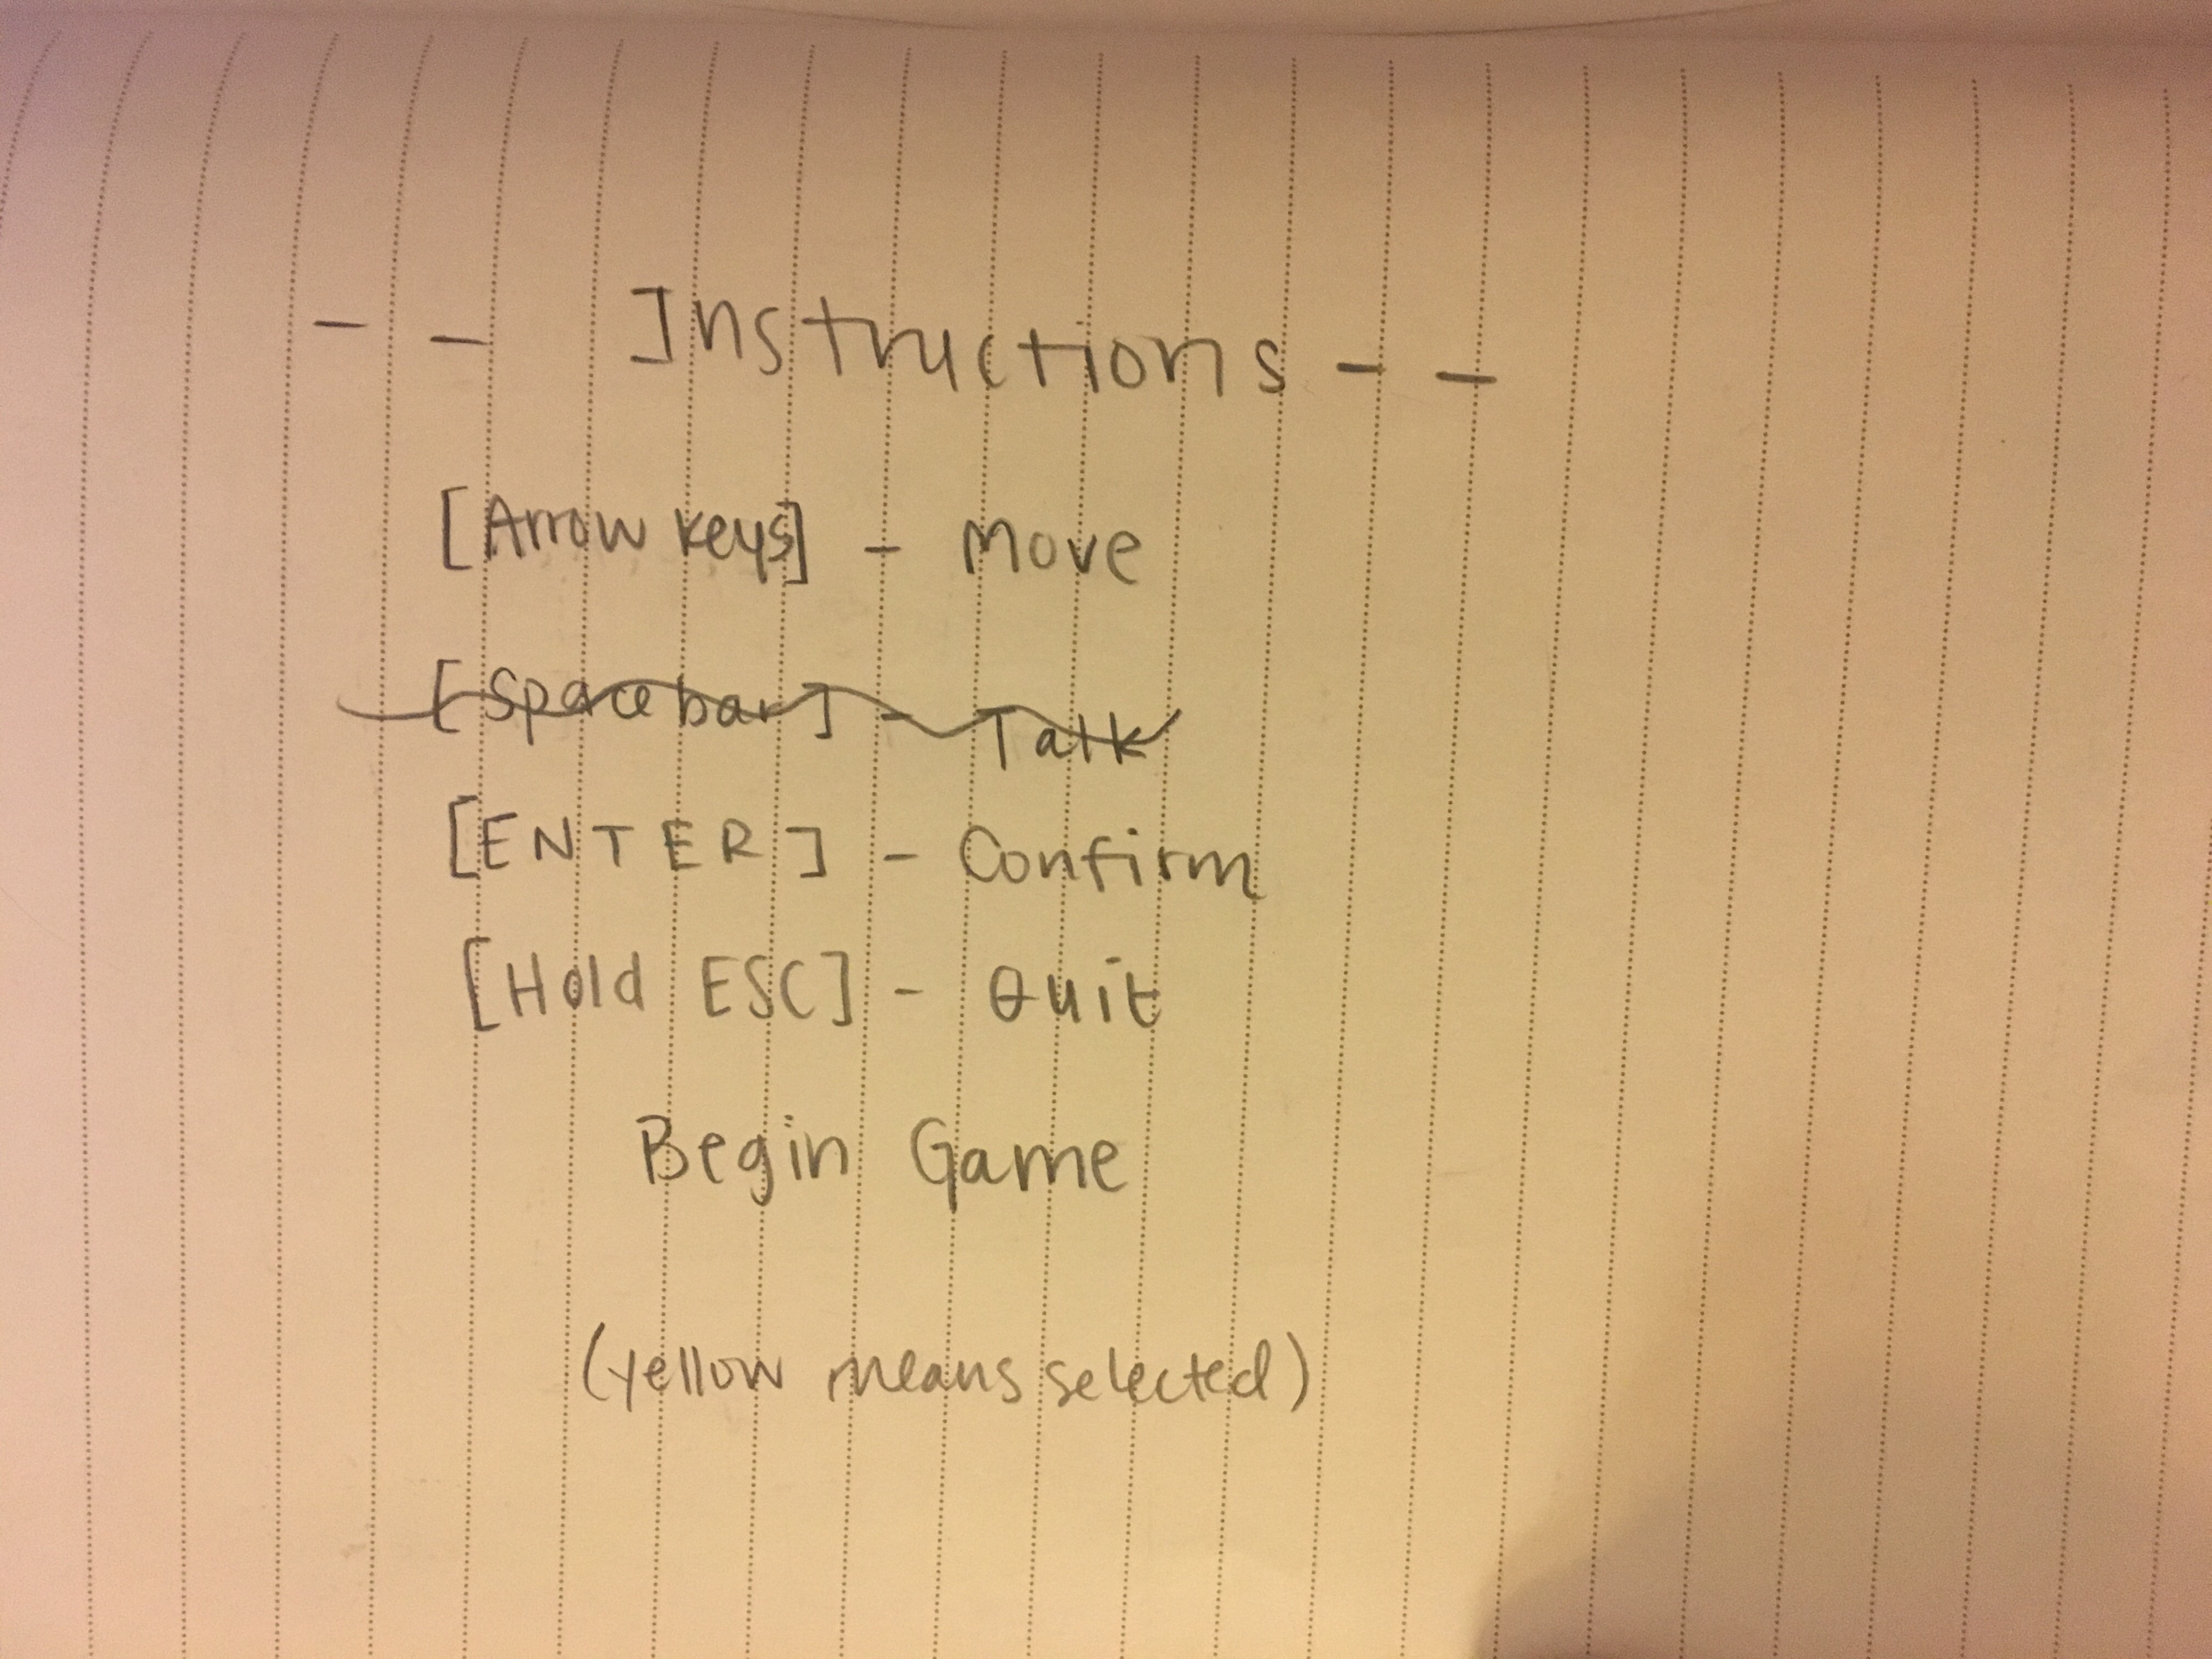 -- Instructions --
[Arrow keys] - Move
[Spacebar] - Talk
[ENTER] - Confirm
[Hold ESC] - Quit
Begin Game
(yellow means selected)